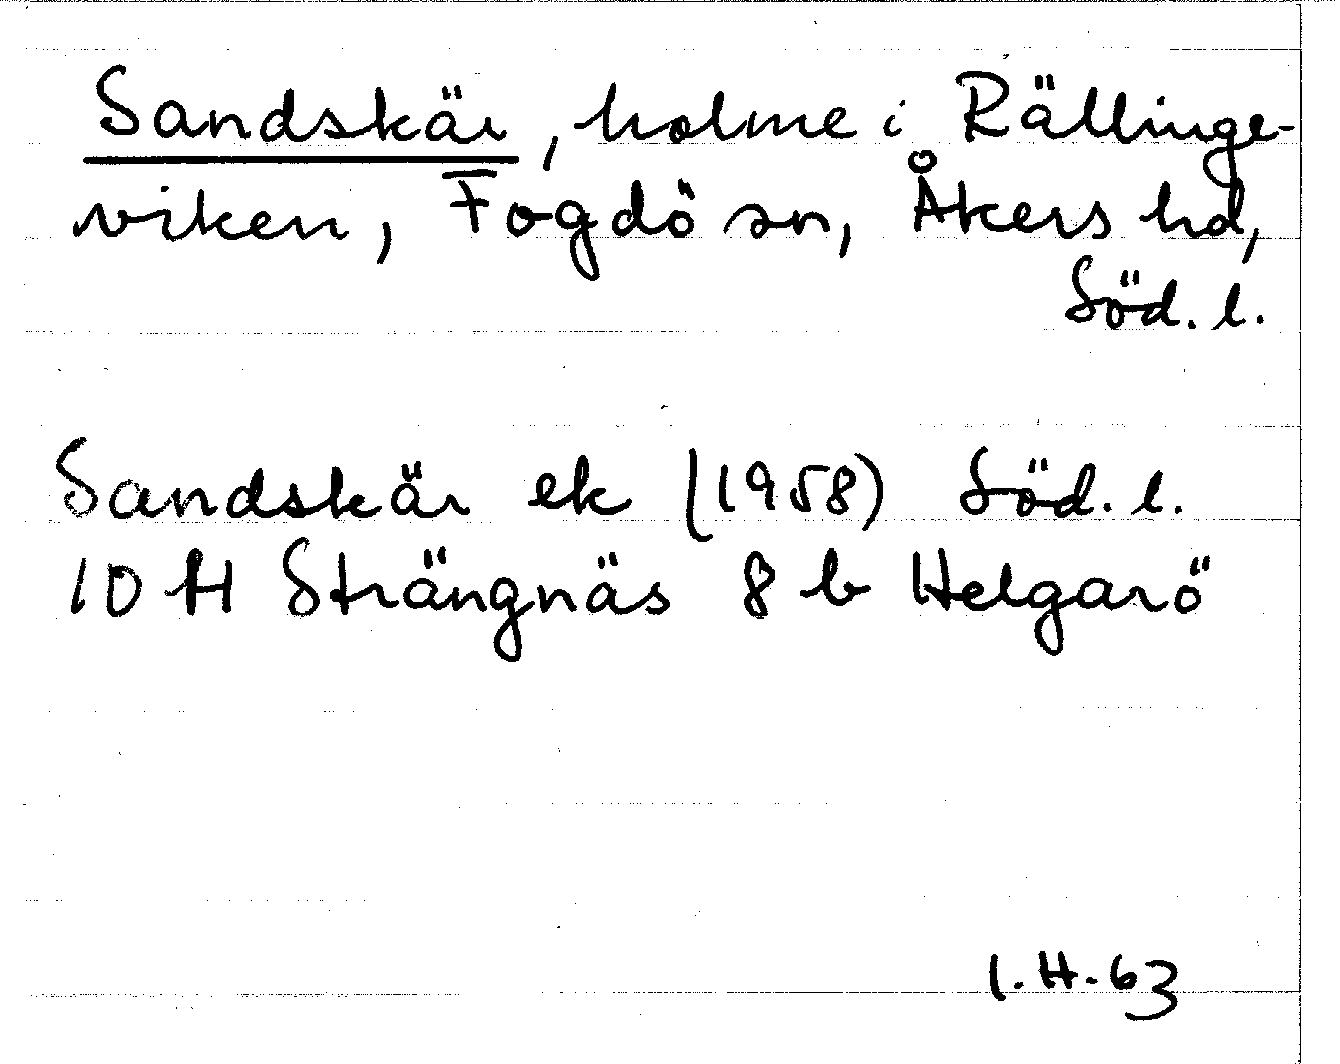 Sandskär, holme i Rällinge-
viken, Fogdö sn, Åkers hd,
Söd. l.
Sandskär ek (1958) Söd. l.
10 H Strängnäs 8 b Helgarö
I.H.63